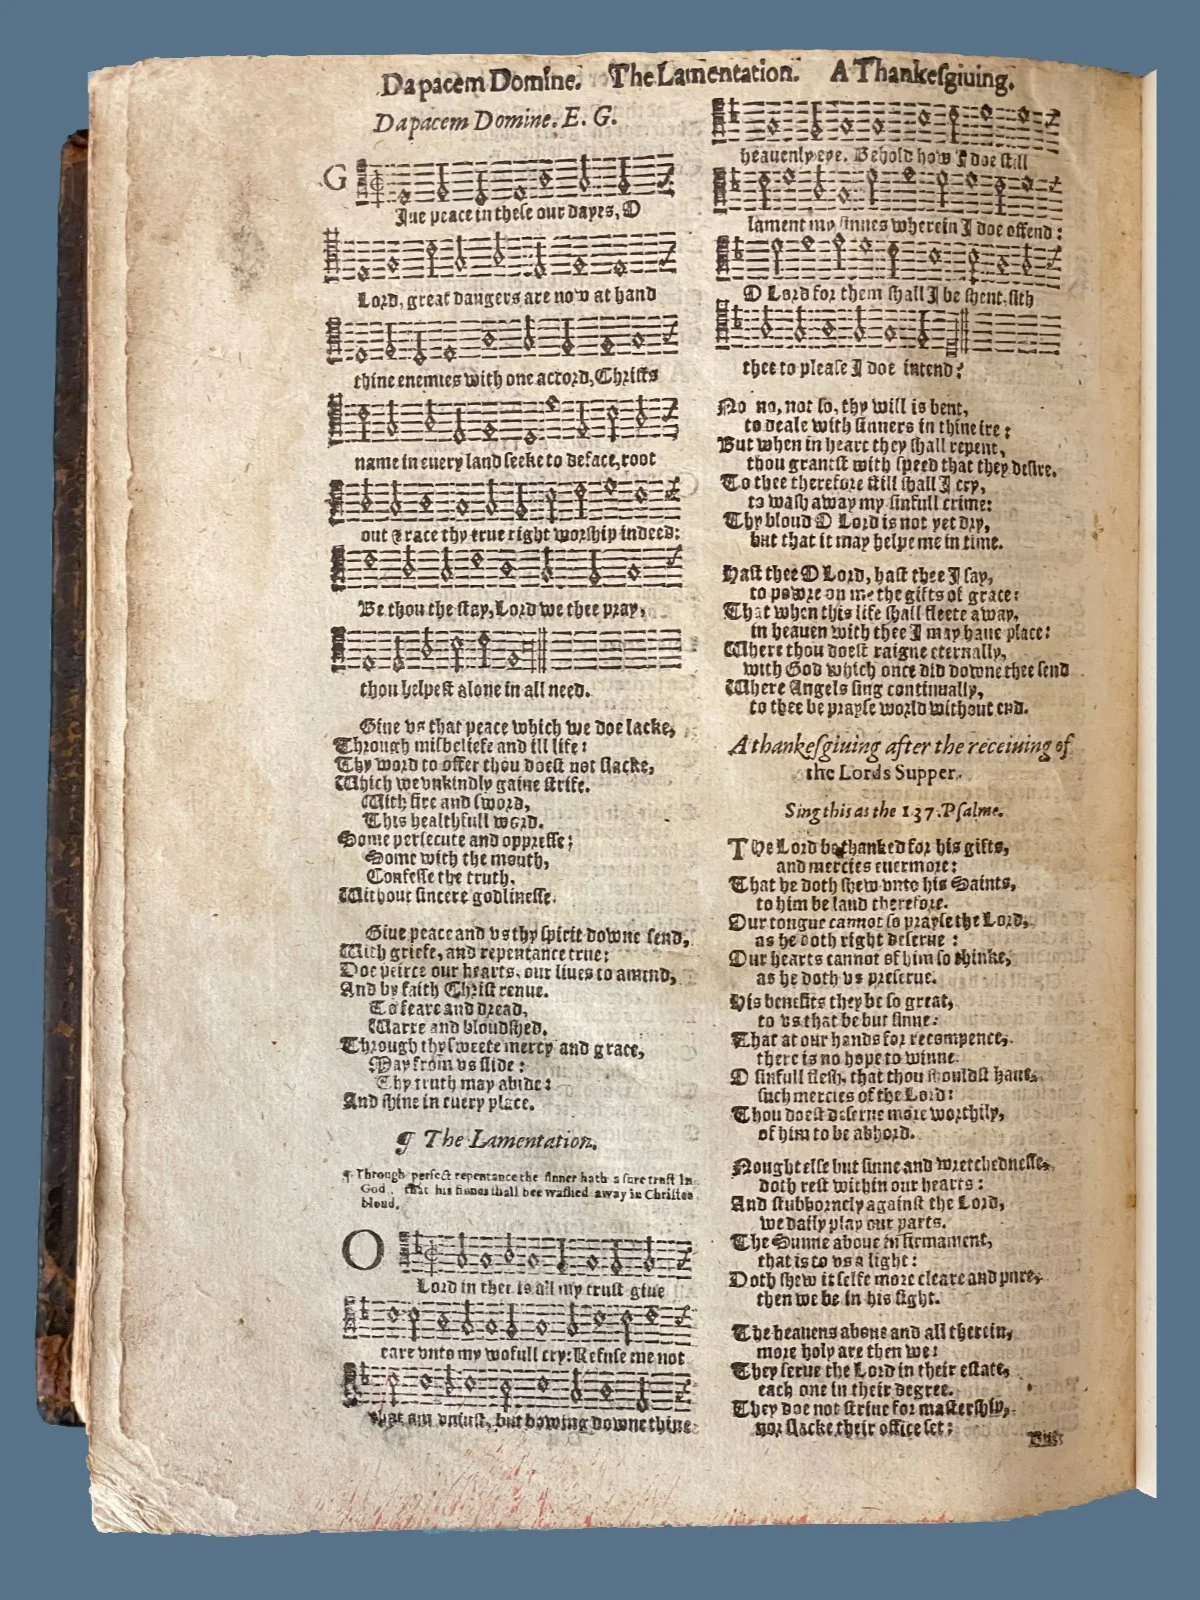 Da pacem Domine. The Lamentation. A Thankesgiuing.
Da pacem Domine. E. G.
GIue peace in these our dayes, O
Lord, great dangers are now at hand
thine enemies with one accord, Christs
name in euery land seeke to deface, root
out & race thy true right worship indeed:
Be thou the stay, Lord we thee pray,
thou helpest alone in all need.
Giue vs that peace which we doe lacke,
Through misbeliefe and ill life:
Thy word to offer thou doest not slacke,
Which we vnkindly gaine strife.
With fire and sword,
This healthfull word.
Some persecute and oppresse;
Some with the mouth,
Confesse the truth,
Without sincere godlinesse.
Giue peace and vs thy spirit downe send,
With griefe, and repentance true:
Doe peirce our hearts, our liues to amend,
And by faith Christ renue.
To feare and dread,
Warre and bloudshed.
Through thy sweete mercy and grace,
May from vs slide:
Thy truth may abide:
And shine in euery place.
¶ The Lamentation.
¶ Through perfect repentance the sinner hath a sure trust in
God, that his sinnes shall bee washed away in Christes
bloud.
O Lord in thee is all my trust giue
eare vnto my wofull cry: Refuse me not
that am vniust, but bowing downe thine
heauenly eye. Behold how I doe still
lament my sinnes wherein I doe offend:
O Lord for them shall I be shent, sith
thee to please I doe intend?
No no, not so, thy will is bent,
to deale with sinners in thine ire:
But when in heart they shall repent,
thou grantst with speed that they desire.
To thee therefore still shall I cry,
to wash away my sinfull crime:
Thy bloud O Lord is not yet dry,
but that it may helpe me in time.
Hast thee O Lord, hast thee I say,
to powre on me the gifts of grace:
That when this life shall fleete away,
in heauen with thee I may haue place:
Where thou doest raigne eternally,
with God which once did downe thee send
Where Angels sing continually,
to thee be prayse world without end.
A thankesgiuing after the receiuing of
the Lords Supper.
Sing this as the 137. Psalme.
THe Lord be thanked for his gifts,
and mercies euermore:
That he doth shew vnto his Saints,
to him be laud therefore.
Our tongue cannot so prayse the Lord,
as he doth right deserue:
Our hearts cannot of him so thinke,
as he doth vs preserue.
His benefits they be so great,
to vs that be but sinne:
That at our hands for recompence,
there is no hope to winne.
O sinfull flesh, that thou shouldst haue,
such mercies of the Lord:
Thou doest deserue more worthily,
of him to be abhord.
Nought else but sinne and wretchednesse,
doth rest within our hearts:
And stubbornely against the Lord,
we daily play our parts.
The Sunne aboue in firmament,
that is to vs a light:
Doth shew it selfe more cleare and pure,
then we be in his sight.
The heauens aboue and all therein,
more holy are then we:
They serue the Lord in their estate,
each one in their degree.
They doe not striue for mastership,
nor slacke their office set:
But